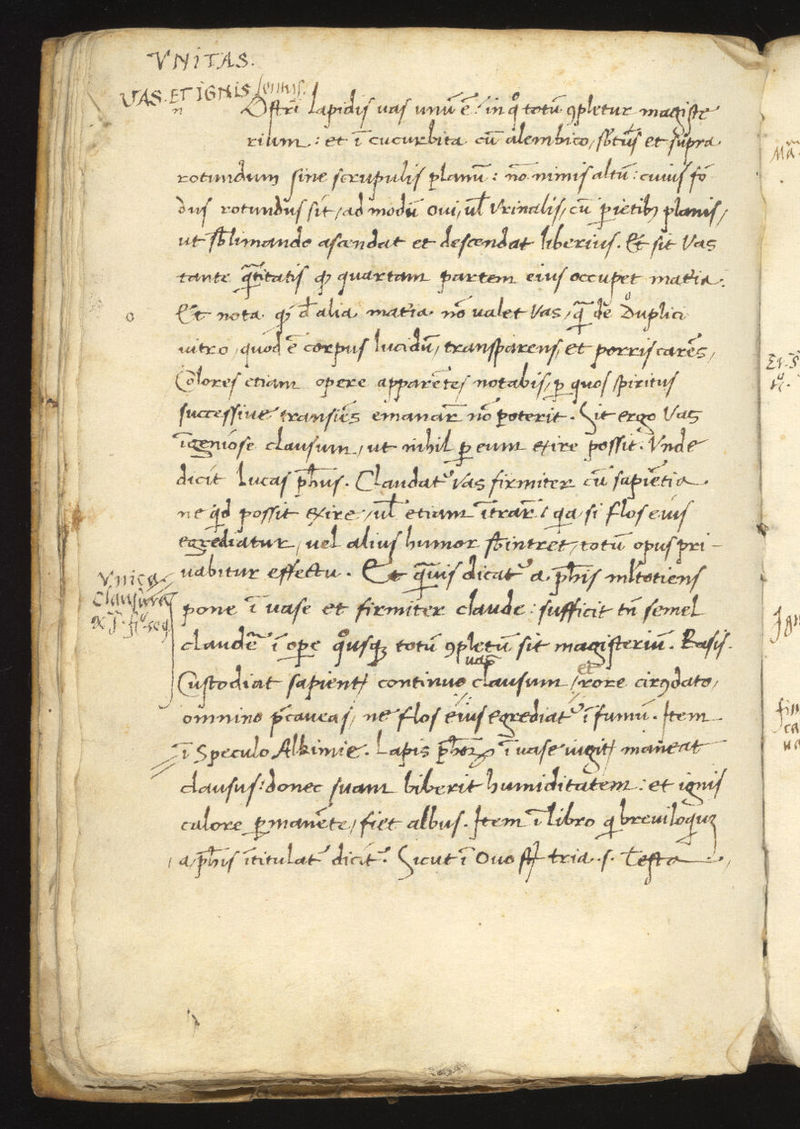 VNITAS.
VAS. ET IGNIS lentus.
n Ostri lapidis vas unū ē: in qº totū 9pletur magiste
rium: et ī cucurbita cū alembico, sbtus et supra
rotundum sine scrupulis planū: nō nimis altū: cuius fō
dus rotundus sit, ad modū oui, ul Vrinalis, cū pietibꝫ planis,
ut sblimando ascendat et descendat liberius. Et sit Vas
tante qātitatis qꝫ quartam partem eius occupet matia.
Et nota qꝫ d alia matia nō ualet Vas, qā de Duplici
uitro, quod ē corpus lucidū, transparens, et porris carēs,
Colores etiam opere apparētes notabis, p quos spiritus
successiue transiēs emanar̄ nō poterit. Sit ergo Vas
īgeniose clausum, ut nihil p eum exire possit. Vnde
dicit Lucas phūs. Claudatᷣ Vas firmiter cū sapiētia
ne qd possit exire, ul etiam ītrar̄: qa si flos eius
egrediatur, uel alius humor sbintret, totū opus pri-
uabitur effectu. Et qāuis dicatᷣ a phīs mltotiens
pone ī uase et firmiter claude: sufficit tn̄ semel
claudē ī ope qºusqꝫ totū 9pletū sit magisteriū. Rasis.
Custodiat sapienter continue vas clausum, et rore circūdato,
omnino pcaueas, ne flos eius egrediatᷣ ī fumū. Item
ī Speculo Alkimie. Lapis phōꝝ ī uase iugiter maneat
clausus: donec suam biberit humiditatem: et ignis
calore pmanēte, fiet albus. Item ī libro q breuiloquiꝫ
a phīs ītitulatᷣ dicitᷣ. Sicut ī Ouo st tria .s. Testa
Vnica
Clausura